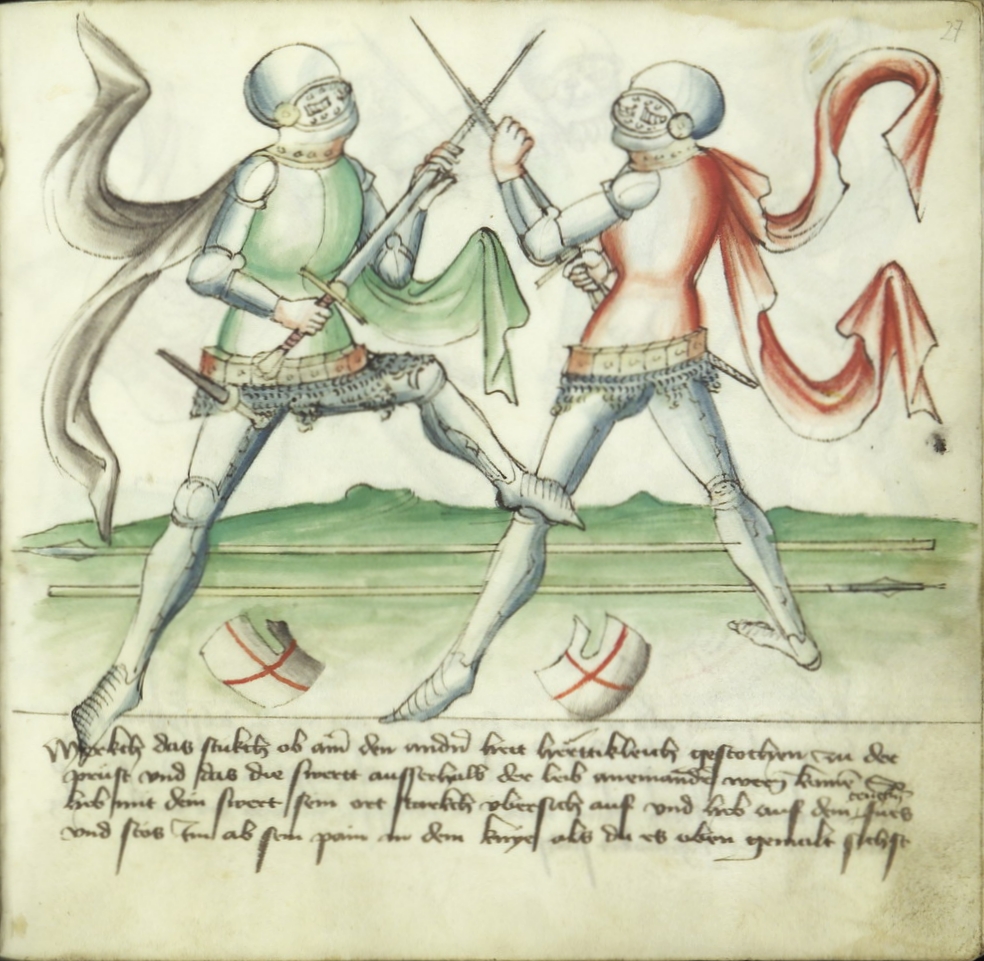 27
Merckch das stukch ob aim den andern hett hertticklleich gestochen zu der
prust vnd das die swertt ausserhalb der leib aneinander wern kome
heb mit dein swert sein ort starckch vbersich auf vnd heb auf dein tengken fues
vnd stos Im ab sein pain in dem knye als du es oben gemalt siehst